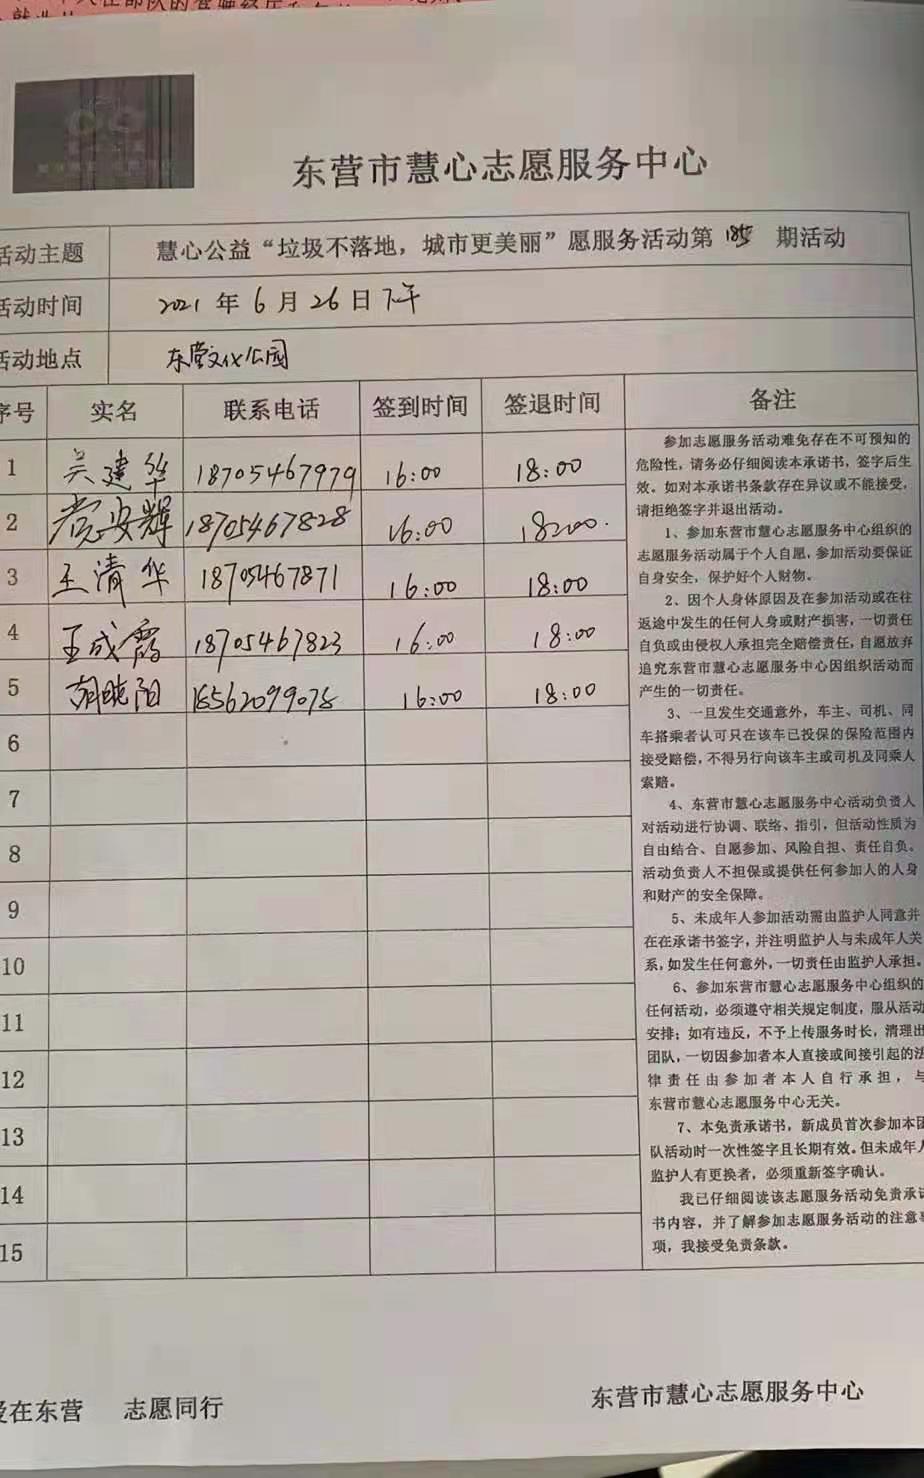 东营市慧心志愿服务中心
活动主题 慧心公益“垃圾不落地，城市更美丽”愿服务活动第185期活动
活动时间 2021年6月26日下午
活动地点 东营文化公园
序号 实名 联系电话 签到时间 签退时间 备注
1 吴建华 18705467979 16:00 18:00
2 党安辉 18705467828 16:00 18:00.
3 王清华 18705467871 16:00 18:00
4 王成霞 18705467823 16:00 18:00
5 胡晓阳 18562099078 16:00 18:00
6
7
8
9
10
11
12
13
14
15
参加志愿服务活动难免存在不可预知的
危险性，请务必仔细阅读本承诺书，签字后生
效。如对本承诺书条款存在异议或不能接受，
请拒绝签字并退出活动。
1、参加东营市慧心志愿服务中心组织的
志愿服务活动属于个人自愿，参加活动要保证
自身安全，保护好个人财物。
2、因个人身体原因及在参加活动或在往
返途中发生的任何人身或财产损害，一切责任
自负或由侵权人承担完全赔偿责任，自愿放弃
追究东营市慧心志愿服务中心因组织活动而
产生的一切责任。
3、一旦发生交通意外，车主、司机、同
车搭乘者认可只在该车已投保的保险范围内
接受赔偿，不得另行向该车主或司机及同乘人
索赔。
4、东营市慧心志愿服务中心活动负责人
对活动进行协调、联络、指引，但活动性质为
自由结合、自愿参加、风险自担、责任自负。
活动负责人不担保或提供任何参加人的人身
和财产的安全保障。
5、未成年人参加活动需由监护人同意并
在在承诺书签字，并注明监护人与未成年人关
系，如发生任何意外，一切责任由监护人承担。
6、参加东营市慧心志愿服务中心组织的
任何活动，必须遵守相关规定制度，服从活动
安排；如有违反，不予上传服务时长，清理出
团队，一切因参加者本人直接或间接引起的法
律责任由参加者本人自行承担，与
东营市慧心志愿服务中心无关。
7、本免责承诺书，新成员首次参加本团
队活动时一次性签字且长期有效。但未成年人
监护人有更换者，必须重新签字确认。
我已仔细阅读该志愿服务活动免责承诺
书内容，并了解参加志愿服务活动的注意事
项，我接受免责条款。
爱在东营 志愿同行
东营市慧心志愿服务中心